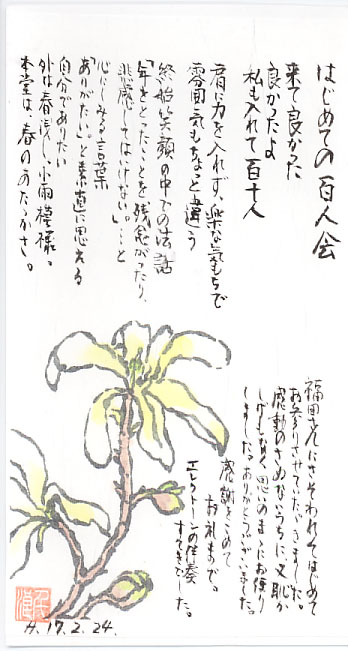 はじめての百人会
来て良かった
良かったよ
私も入れて百十人
肩に力を入れず、楽な気もちで
雰囲気もちょっと違う
終始笑顔の中での法話
「年をとったことを残念がったり、
悲感してはいけない」…と
心にしみる言葉
「ありがたい。」と素直に思える
自分でありたい
外は春浅し、小雨模様。
本堂は、春のあたゝかさ。
福田さんにさそわれてはじめて
お参りさせていただきました。
感動のさめないうちに又恥か
しげもなく思いのまゝお便り
しました。ありがとうございました。
感謝をこめて
お礼まで。
エレクトーンの伴奏
すてきでした。
H.17.2.24.